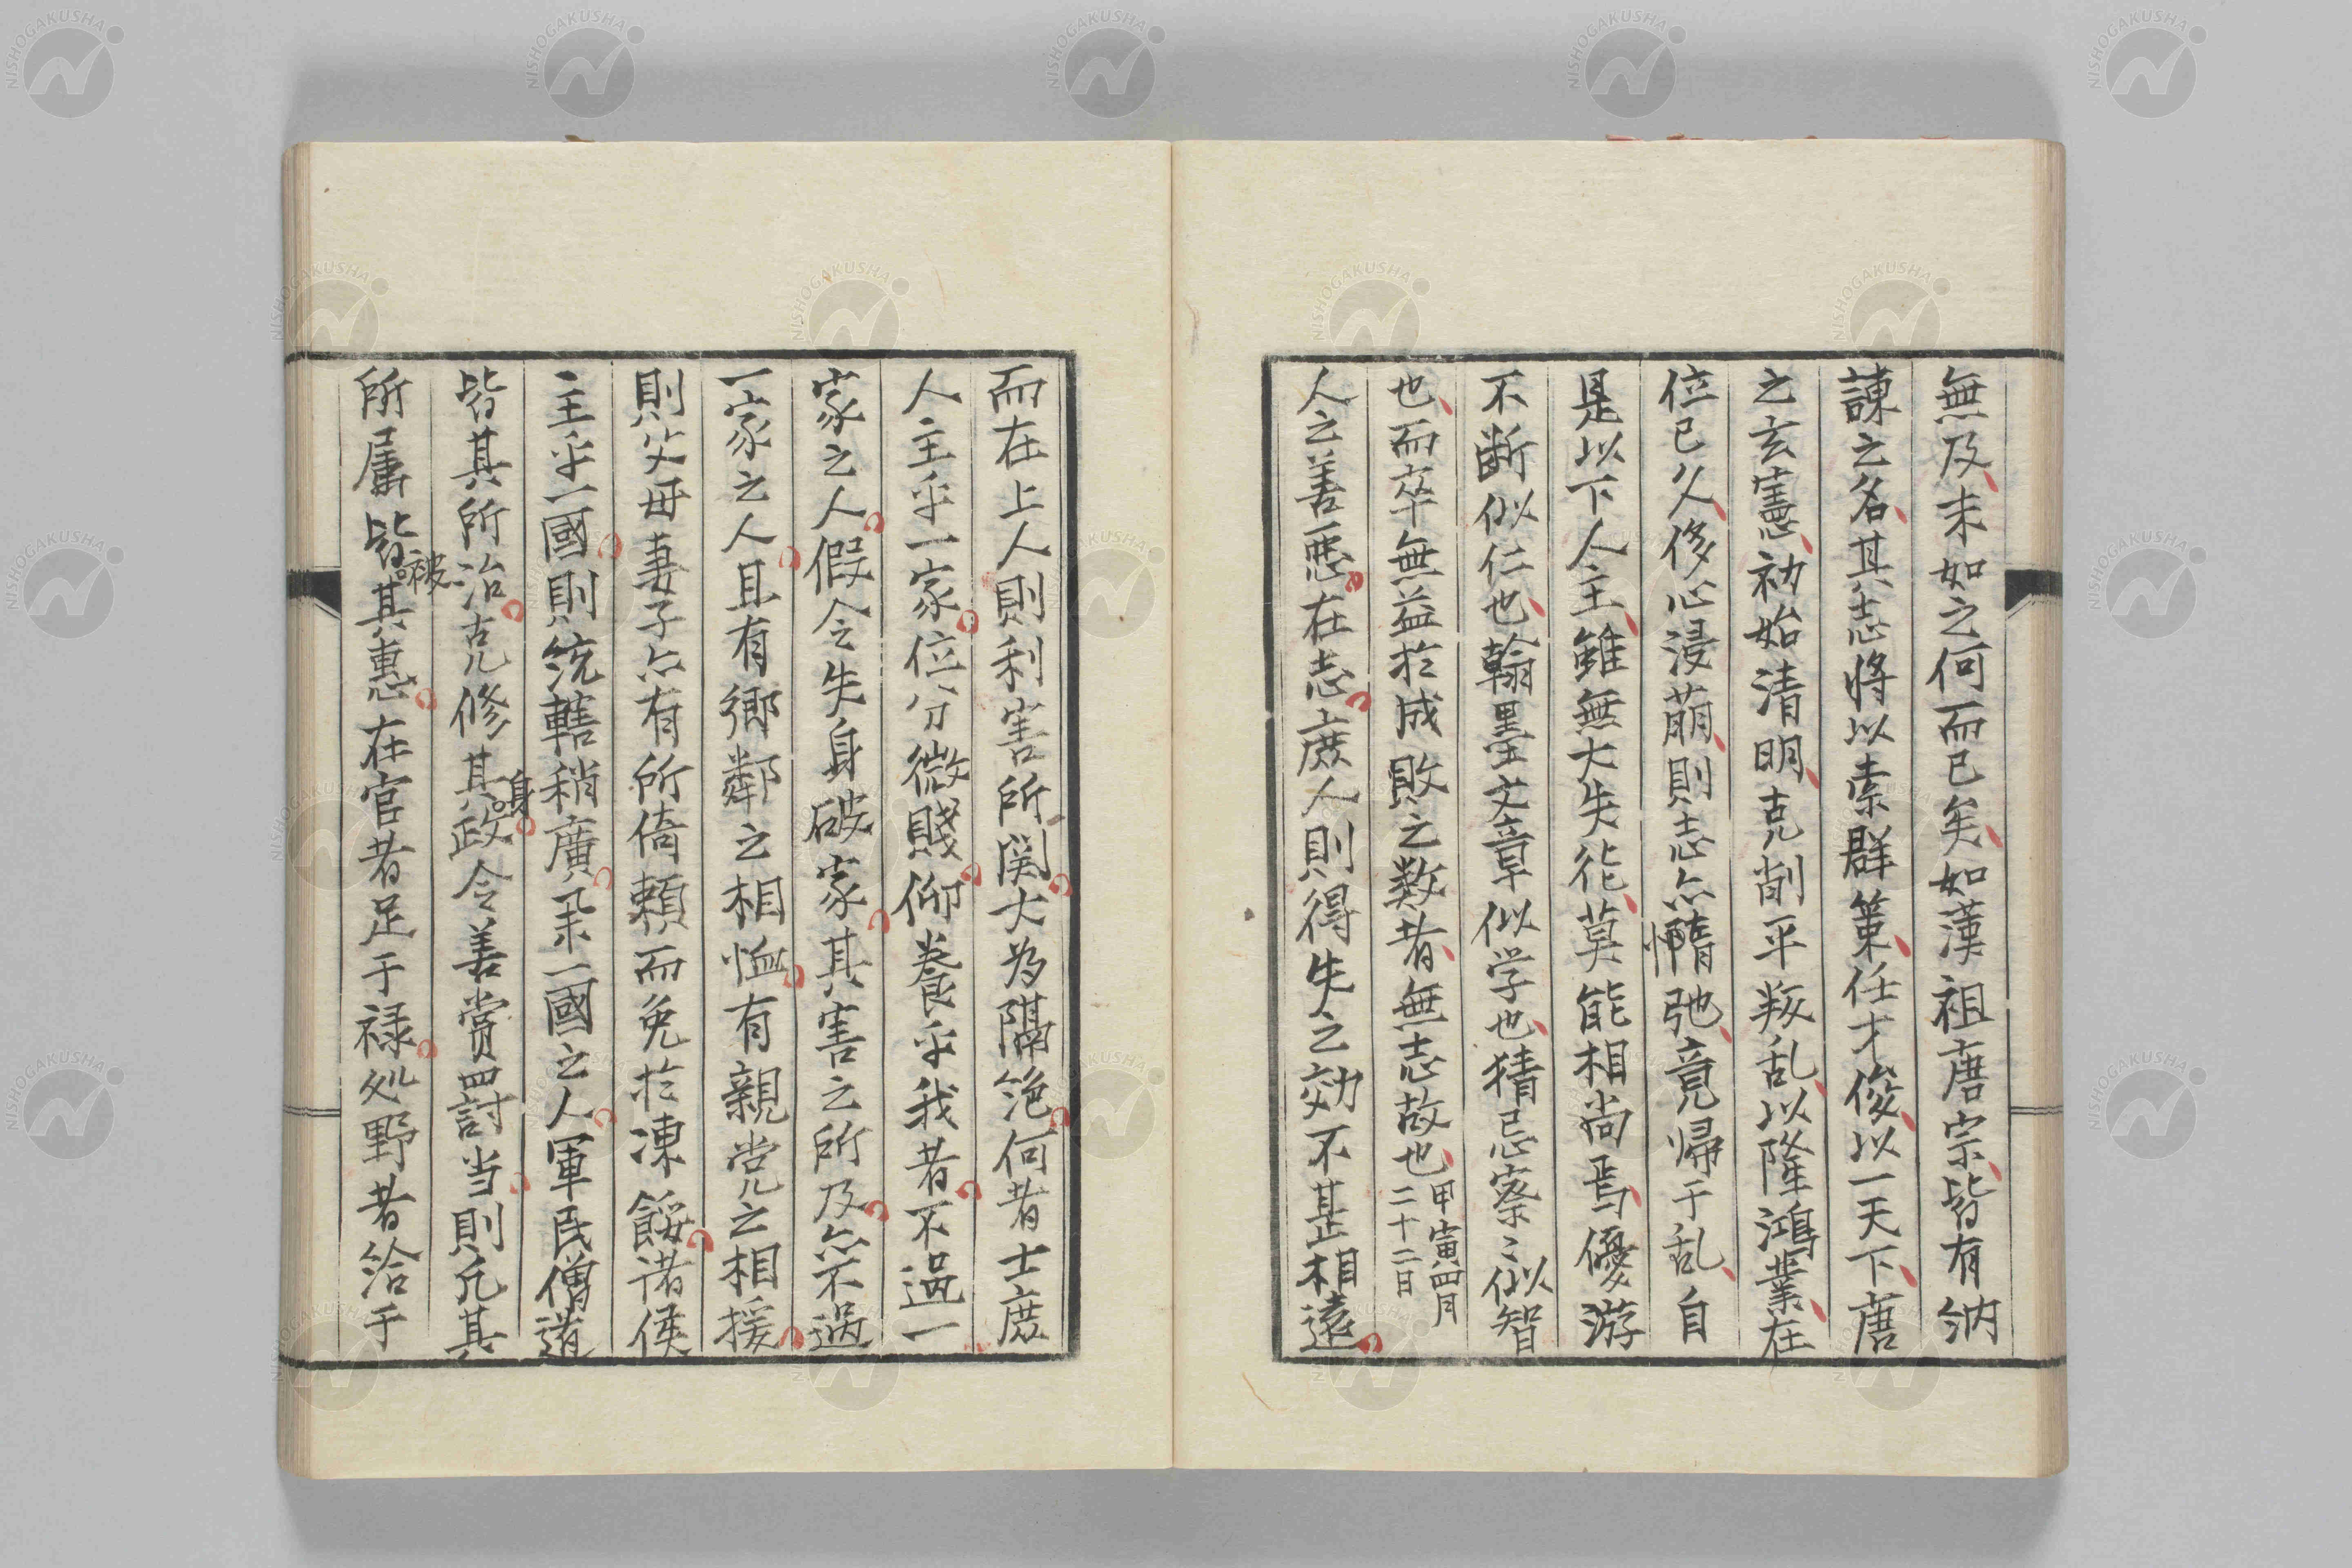 無及未如之何而已矣如漢祖唐宗皆有納
諌之名其志将以索群策任才俊以一天下唐
之玄憲初始清明克削平叛乱以隆鴻業在
位已久侈心浸萠則志亦惰弛竟帰于乱自
是以下人主雖無大失徳莫能相尚焉優游
不断似仁也翰墨文章似学也猜忌察〻似智
也而卒無益於成敗之数者無志故也甲寅四月
二十二日
人之善悪在志庶人則得失之効不甚相遠
而在上人則利害所関大為隔絶何者士庶
人主乎一家位分微賤仰養乎我者不過一
家之人假令失身破家其害之所及亦不過
一家之人且有郷鄰之相恤有親党之相援
則父母妻子亦有所倚頼而免於凍餒諸侯
主乎一國則統轄稍廣呆一國之人軍民僧道
皆其所治克修其身政令善賞罰当則凡其
所属皆被其惠在官者足于禄処野者洽于
NISHOGAKUSHA